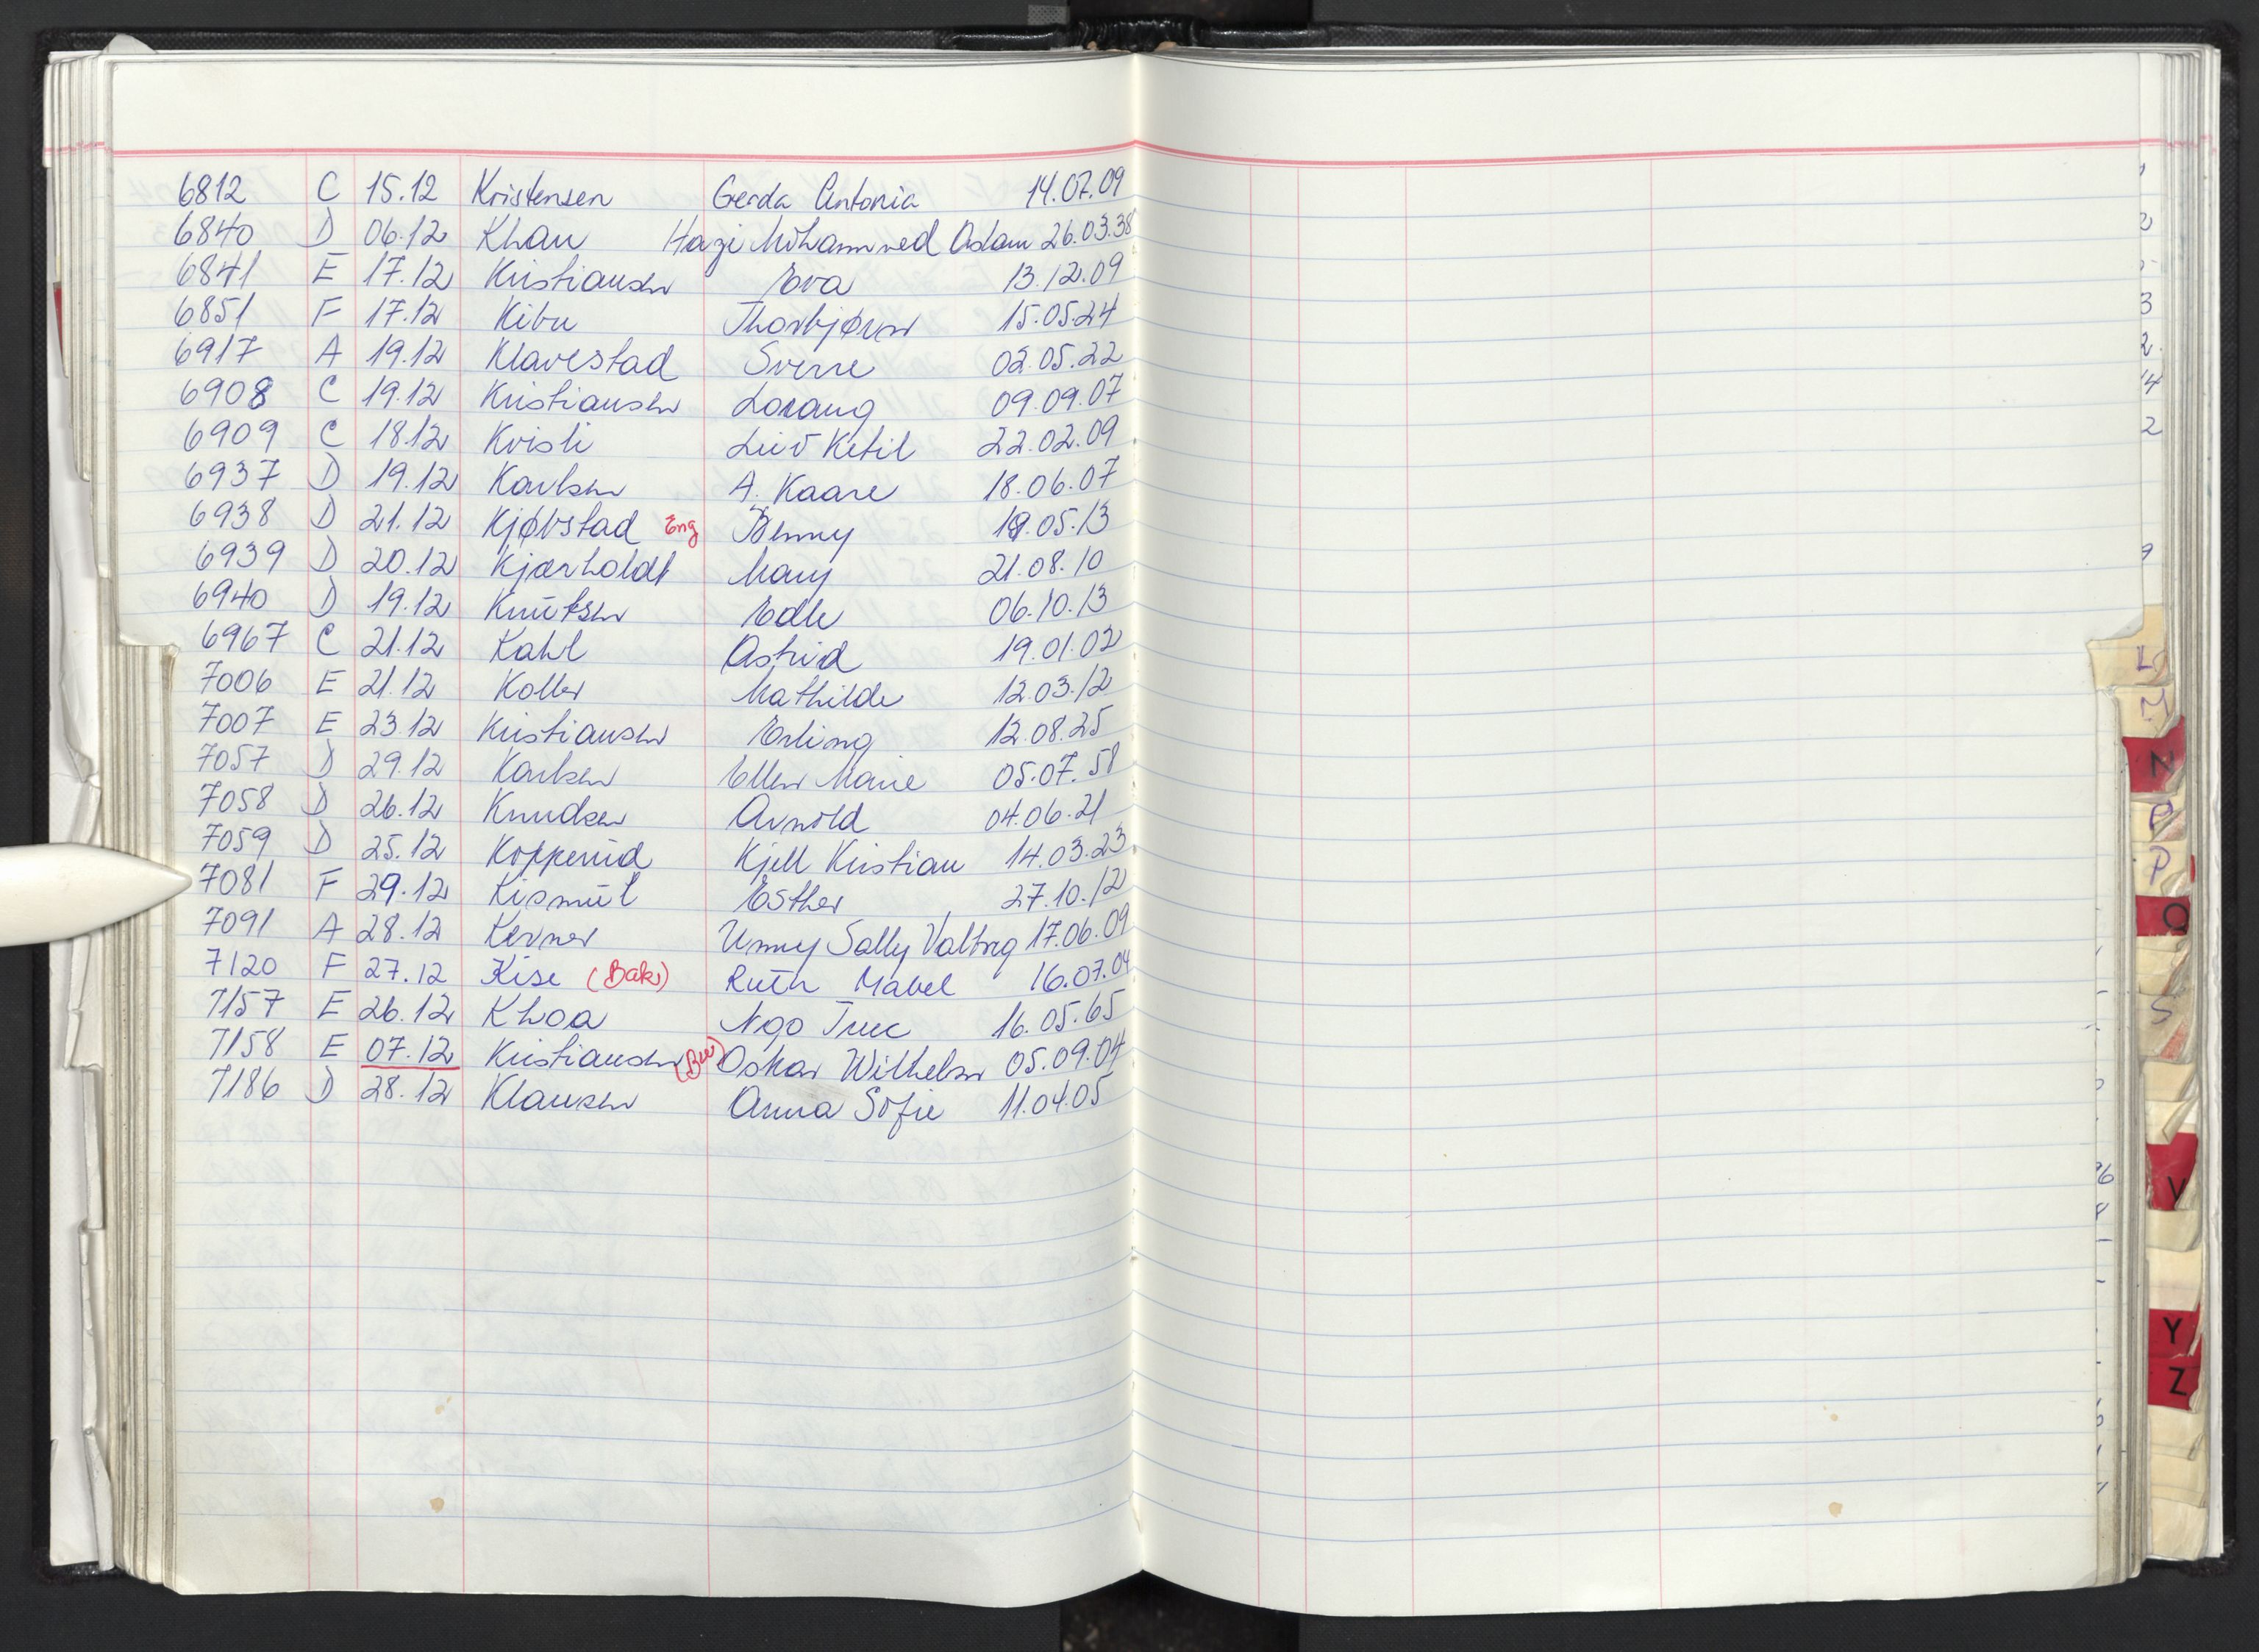 6812 C 15.12 Kristensen Gerda Antonia 14.07.09
6840 D 06.12 Khan Hazi Mohammed Aslam 26.03.38
6841 E 17.12 Kristiansen Eva 13.12.09
6851 F 17.12 Kibu Thorbjørn 15.05.24
6917 A 19.12 Klavestad Sverre 02.05.22
6908 C 19.12 Kristiansen Lorang 09.09.07
6909 C 18.12 Kvisli Leiv Ketil 22.02.09
6937 D 19.12 Karlsen A. Kaare 18.06.07
6938 D 21.12 Kjøbstad Eng Benny 19.05.13
6939 D 20.12 Kjærholdt Mary 21.08.10
6940 D 19.12 Knutsen Edle 06.10.13
6967 C 21.12 Kahl Astrid 19.01.02
7006 E 21.12 Koller Mathilde 12.03.12
7007 E 23.12 Kristiansen Erling 12.08.25
7057 D 29.12 Karlsen Ellen Marie 05.07.58
7058 D 26.12 Knudsen Arnold 04.06.21
7059 D 25.12 Kopperud Kjell Kristian 14.03.23
7081 F 29.12 Kismul Esther 27.10.12
7091 A 28.12 Kerner Unny Sally Valbrg 17.06.09
7120 F 27.12 Kise (Bak) Ruth Mabel 16.07.04
7157 E 26.12 Khoa Ngo Truc 16.05.65
7158 E 07.12 Kristiansen Oskar Wilhelm 05.09.04
7186 D 28.12 Klausen Anna Sofie 11.04.05
L
M
N
P
O
S
V
Y
Z